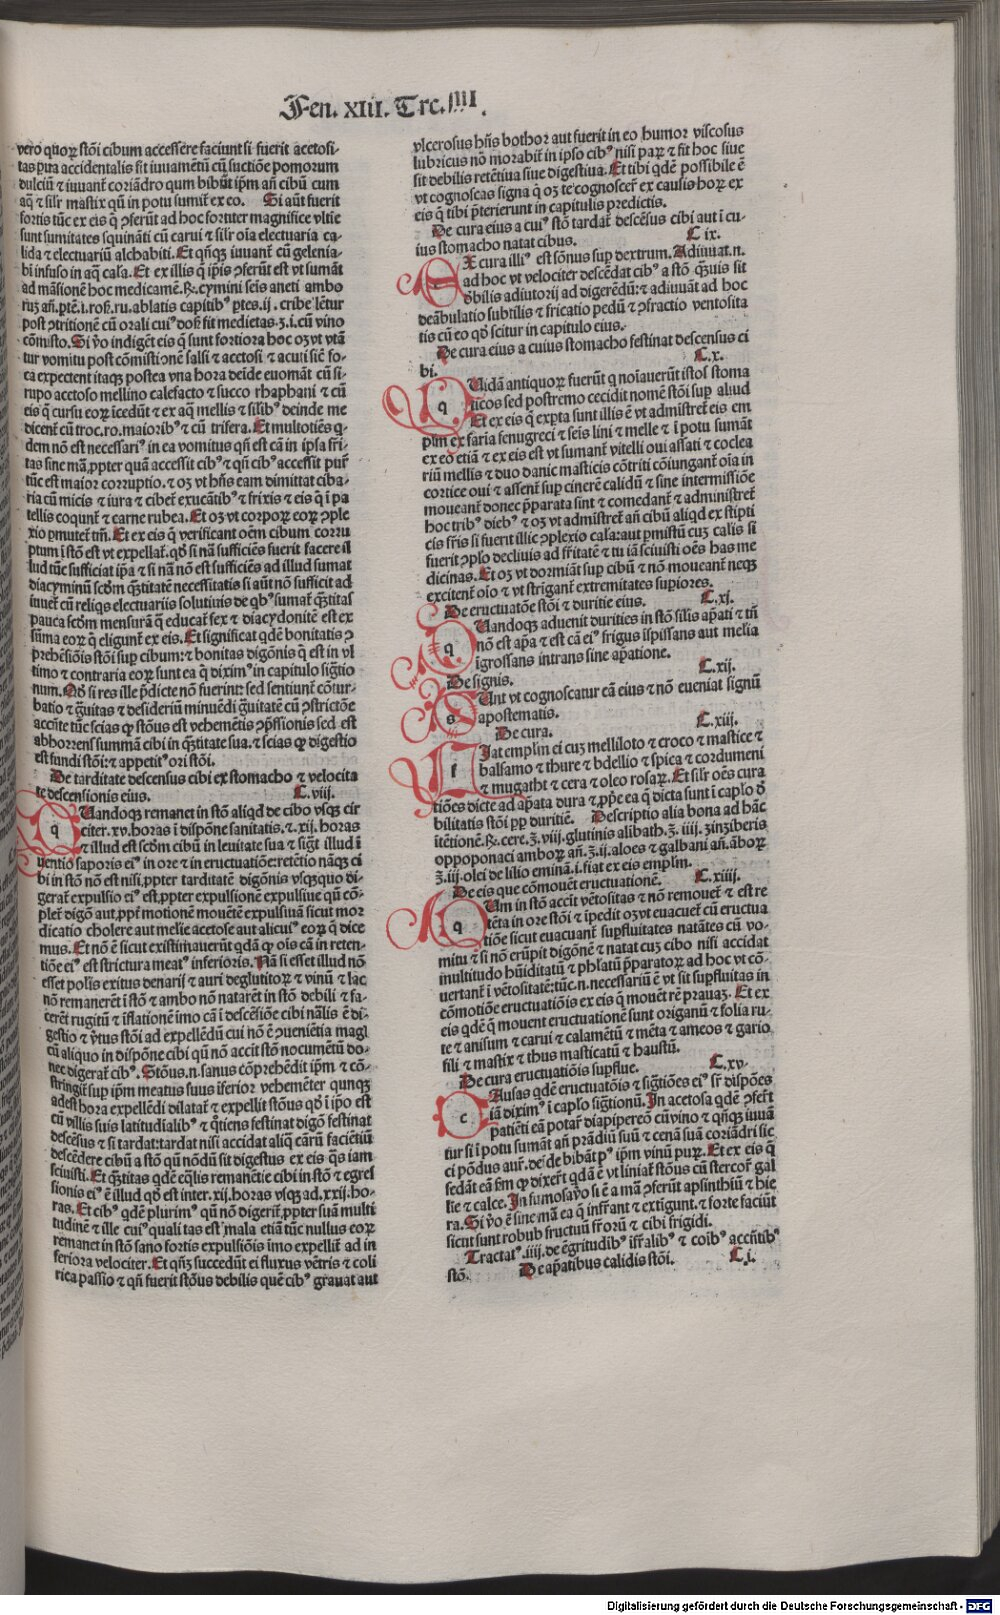 Fen. XIII. Trc. IIII.
vero quoꝝ stõi cibum accessere faciunt si fuerit acetosi-
tas pura accidentalis fit iuuamẽtũ cũ suctiõe pomorum
dulciũ ⁊ iuuant̃ coriãdro qum bibũt ip̃m añ cibũ cum
aq̃ ⁊ sil̃r mastix qñ in potu sumit̃ ex eo. Si aũt fuerit
fortis tũc ex eis q̃ ꝯferũt ad hoc fortiter magnifice vltie
sunt sumitates squinãti cũ carui ⁊ sil̃r oĩa electuaria ca-
lida ⁊ electuariũ alchabiti. Et qñqꝫ iuuant̃ cũ gelenia-
bi infuso in aq̃ casa. Et ex illis q̃ ip̃is ꝯferũt est vt sumãt
ad mãsionẽ hoc medicamẽ. ℞. cymini seis aneti ambo
post ꝯtritionẽ cũ oxali cuiꝰ dos̃ fit medietas. ʒ. i. cũ vino
cõmisto. Si ṽo indigẽt eis q̃ sunt fortiora hoc oꝫ vt vtã
tur vomitu post cõmistiõnẽ salsi ⁊ acetosi ⁊ acuti siẽ fo-
ca expectent itaqꝫ postea vna hora deĩde euomãt cũ si-
rupo acetoso mellino calefacto ⁊ succo rhaphani ⁊ cũ
eis q̃ cursu eoꝝ ĩcedũt ⁊ ex aq̃ mellis ⁊ sil̃ibꝰ deinde me
dicent̃ cũ troc. ro. maioribꝰ ⁊ cũ trifera. Et multotiẽs q̃-
dem nõ est necessariꝰ in ea vomitus qñ est cã in ipsa fri-
tas sine mã. ꝓpter quã accessit cibꝰ ⁊ qñ cibꝰ accessit put̃
tũc est maior corruptio. ⁊ oꝫ vt hñs eam dimittat ciba-
ria cũ micis ⁊ iura ⁊ cibet̃ exucãtibꝰ ⁊ frixis ⁊ eis q̃ ĩ pa
tellis coqunt̃ ⁊ carne rubea. Et oꝫ vt corpoꝝ eoꝝ ꝯple
xio ꝑmutet̃ tm̃. Et ex eis q̃ verificant oẽm cibum corru
ptum ĩ stõ est vt expellat̃. qđ si nã sufficiẽs fuerit facere il
lud tũc sufficiat ip̃a ⁊ si nã nõ est sufficiẽs ad illud sumat
diacyminũ scđm q̃titatẽ necessitatis si aũt nõ sufficit ad
iuuet̃ cũ reliqs electuariis solutiuis de qbꝰ sumat̃ q̃titas
pauca scđm mensurã q̃ educat̃ fex ⁊ diacydonitẽ est ex
sũma eoꝝ q̃ eligunt̃ ex eis. Et significat qđẽ bonitatis ꝯ
prehẽsiõis stõi suꝑ cibum: ⁊ bonitas digõnis q̃ est in vl
timo ⁊ contraria eoꝝ sunt ea q̃ diximꝰ in capitulo sig̃tio
num. Qđ si res ille p̃dicte nõ fuerint: sed sentiunt̃ cõtur-
batio ⁊ g̃uitas ⁊ desideriũ minuẽdi g̃uitatẽ cũ ꝯstrictõe
accñte tũc scias qꝫ stõus est vehemẽtis ꝯpssionis sed est
abhorrens summã cibi in q̃titate sua. ⁊ scias qꝫ digestio
est fundi stõi: ⁊ appetitꝰ oris stõi.
De tarditate descensus cibi ex stomacho ⁊ velocita
te descensionis eius. C. viij.
QUandoqꝫ remanet in stõ aliqđ de cibo vsqꝫ cir
citer. xv. horas ĩ dispõne sanitatis. ⁊. xij. horas
⁊ illud est scđm cibũ in leuitate sua ⁊ sig̃t illud ĩ
uentio saporis eiꝰ in ore ⁊ in eructuatiõe: retẽtio nãqꝫ ci
bi in stõ nõ est nisi ꝓpter tarditatẽ digõnis vsqꝫquo di-
gerat̃ expulsio eiꝰ est. ꝓpter expulsionẽ expulsiue qñ cõ-
plet̃ digõ aut. ꝓpt̃ motionẽ mouẽtẽ expulsiuã sicut mor
dicatio cholere aut melie acetose aut alicuiꝰ eoꝝ q̃ dice
mus. Et nõ ẽ sicut existimauerũt qdã qꝫ oĩs cã in reten-
tiõe eiꝰ est strictura meatꝰ inferioris. Nã si esset illud nõ
esset polis exitus denarij ⁊ auri deglutitoꝝ ⁊ vinũ ⁊ lac
nõ remanerẽt ĩ stõ ⁊ ambo nõ natarẽt in stõ debili ⁊ fa-
cerẽt rugitũ ⁊ ĩflationẽ imo cã ĩ descẽsiõe cibi nãlis ẽ di-
gestio ⁊ ṽtus stõi ad expellẽdũ cui nõ ẽ ꝯueniẽtia magl
cũ aliquo in dispõne cibi qñ nõ accñt stõ nocumẽtũ do-
nec digerat̃ cibꝰ. Stõus. n. sanus cõprehẽdit ip̃m ⁊ cõ-
stringit̃ suꝑ ip̃m meatus suus ĩferior vehemẽter qunqꝫ
adest hora expellẽdi dilatat̃ ⁊ expellit stõus qđ ĩ ip̃o est
cũ villis suis latitudialibꝰ ⁊ q̃tiens festinat digõ festinat
descẽsus ⁊ si tardat: tardat nisi accidat aliq̃ cãrũ faciẽtiũ
descẽdere cibũ a stõ qñ nõdũ sit digestus ex eis q̃s iam
sciuisti. Et q̃titas qđẽ eq̃lis remanẽtie cibi in stõ ⁊ egres
sionis eiꝰ ẽ illud qđ est inter. xij. horas vsqꝫ ad. xxij. ho-
ras. Et cibꝰ qđẽ plurimꝰ qñ nõ digerit̃. ꝓpter suã multi
tudinẽ ⁊ ille cuiꝰ qualitas est mala etiã tũc nullus eoꝝ
remanet in stõ sano fortis expulsiõis imo expellit̃ ad in
feriora velociter. Et qñqꝫ succedũt ei fluxus vẽtris ⁊ coli
rica passio ⁊ qñ fuerit stõus debilis quẽ cibꝰ grauat aut
vlcerosus hñs bothor aut fuerit in eo humor viscosus
lubricus nõ morabit̃ in ipso cibꝰ nisi parꝝ ⁊ fit hoc siue
sit debilis retẽtiua siue digestiua. Et tibi qđẽ possibile ẽ
vt cognoscas signa q̃ oꝫ te cognoscer̃ ex causis hoꝝ ex
eis q̃ tibi p̃terierunt in capitulis predictis.
De cura eius a cuiꝰ stõ tardat̃ descẽsus cibi aut ĩ cu-
ius stomacho natat cibus. C ix.
EX cura illiꝰ est sõnus suꝑ dextrum. Adiuuat. n.
ad hoc vt velociter descẽdat cibꝰ a stõ q̃uis sit
đbilis adiutorij ad digerẽdũ: ⁊ adiuuãt ad hoc
deãbulatio subtilis ⁊ fricatio pedũ ⁊ ꝯfractio ventosita
tis cũ eo qđ scitur in capitulo eius.
De cura eius a cuius stomacho festinat descensus ci
bi. C. x.
QUidã antiquoꝝ fuerũt q̃ noĩauerũt istos stoma
ticos sed postremo cecidit nomẽ stõi suꝑ aliud
Et ex eis q̃ exp̃ta sunt illis ẽ vt admĩstret̃ eis em
plm̃ ex faria fenugreci ⁊ seis lini ⁊ melle ⁊ ĩ potu sumãt
ex eo etiã ⁊ ex eis est vt sumant̃ vitelli oui assati ⁊ coclea
riũ mellis ⁊ duo danic masticis cõtriti cõiungant̃ oĩa in
cortice oui ⁊ assent̃ suꝑ cinerẽ calidũ ⁊ sine intermissiõe
moueant̃ donec p̃parata sint ⁊ comedant̃ ⁊ administret̃
hoc tribꝰ diebꝰ ⁊ oꝫ vt admĩstret̃ añ cibũ aliqđ ex stipti
cis fr̃is si fuerit illic ꝯplexio casa: aut ꝑmistũ cuꝫ calis si
fuerit ꝯplo decliuis ad fr̃itatẽ ⁊ tu iã sciuisti oẽs has me
dicinas. Et oꝫ vt dormiãt suꝑ cibũ ⁊ nõ moueant̃ neqꝫ
excitent̃ oĩo ⁊ vt strigant̃ extremitates suꝑiores.
De eructuatõe stõi ⁊ duritie eius. C. xj.
QUandoqꝫ aduenit durities in stõ sil̃is ap̃ati ⁊ tm̃
nõ est ap̃a ⁊ est cã eiꝰ frigus ĩspissans aut melia
ĩgrossans intrans sine ap̃atione.
De signis. C. xij.
SUnt vt cognoscatur cã eius ⁊ nõ eueniat signũ
apostematis.
De cura. C. xiij.
FIat emplm̃ ei cuꝫ melliloto ⁊ croco ⁊ mastice ⁊
balsamo ⁊ thure ⁊ bdellio ⁊ spica ⁊ cordumeni
⁊ mugatht ⁊ cera ⁊ oleo rosaꝝ. Et sil̃r oẽs cura
tiões dicte ad ap̃ata dura ⁊. ꝓp̃e ea q̃ dicta sunt ĩ caplo đ
bilitatis stõi pꝑ duritiẽ. Descriptio alia bona ad hãc
ĩtẽtionẽ. ℞. cere. ʒ. viij. glutinis alibath. ʒ. iiij. zinziberis
oppoponaci amboꝝ añ. ʒ. ij. aloes ⁊ galbani añ. ãboꝝ
ʒ. iij. olei de lilio eminã. i. fiat ex eis emplm̃.
De eis que cõmouẽt eructuationẽ. C. xiiij.
QUm in stõ accĩt vẽtositas ⁊ nõ remouet̃ ⁊ est re
tẽta in ore stõi ⁊ ĩpedit oꝫ vt euacuet̃ cũ eructua
tiõe sicut euacuant̃ suꝑfluitates natãtes cũ vo-
mitu ⁊ si nõ erũpit digõnẽ ⁊ natat cuꝫ cibo nisi accidat
multitudo hũiditatũ ⁊ phlatũ p̃paratoꝝ ad hoc vt cõ-
uertant̃ ĩ vẽtositatẽ: tũc. n. necessariũ ẽ vt sit suꝑfluitas in
cõmotiõe eructuatiõis ex eis q̃ mouẽt rẽ prauaꝫ. Et ex
eis qđẽ q̃ mouent eructuationẽ sunt origanũ ⁊ folia ru-
te ⁊ anisum ⁊ carui ⁊ calamẽtũ ⁊ mẽta ⁊ ameos ⁊ gario
fili ⁊ mastix ⁊ thus masticatũ ⁊ haustũ.
De cura eructuatiõis suꝑflue. C. xv.
CAusas qđẽ eructuatõis ⁊ sig̃tiões eiꝰ sr̃ dispões
iã diximꝰ ĩ caplo sig̃tionũ. In acetosa qđẽ ꝯfer̃t
patiẽti eã potat̃ diapipereõ cũ vino ⁊ qñqꝫ iuuã
tur si ĩ potu sumãt añ prãdiũ suũ ⁊ cenã suã coriãdri sic
ci põdus aur̃. deĩde bibãt pꝰ ip̃m vinũ puꝝ. Et ex eis q̃
sedãt eã fm̃ qꝫ dixer̃t qdã ẽ vt liniat̃ stõus cũ stercor̃ gal
lie ⁊ calce. In fumosa ṽo si ẽ a mã ꝯferũt apsinthiũ ⁊ hie
ra. Si ṽo ẽ sine mã ea q̃ infr̃ant ⁊ extĩgunt. ⁊ forte faciũt
sicut sunt robub fructuũ fr̃oꝝ ⁊ cibi frigidi.
Tractatꝰ. iiij. de ẽgritudibꝰ ĩfr̃alibꝰ ⁊ coibꝰ accñtibꝰ
stõ. De ap̃atibus calidis stõi. C. i.
Digitalisierung gefördert durch die Deutsche Forschungsgemeinschaft - DFG